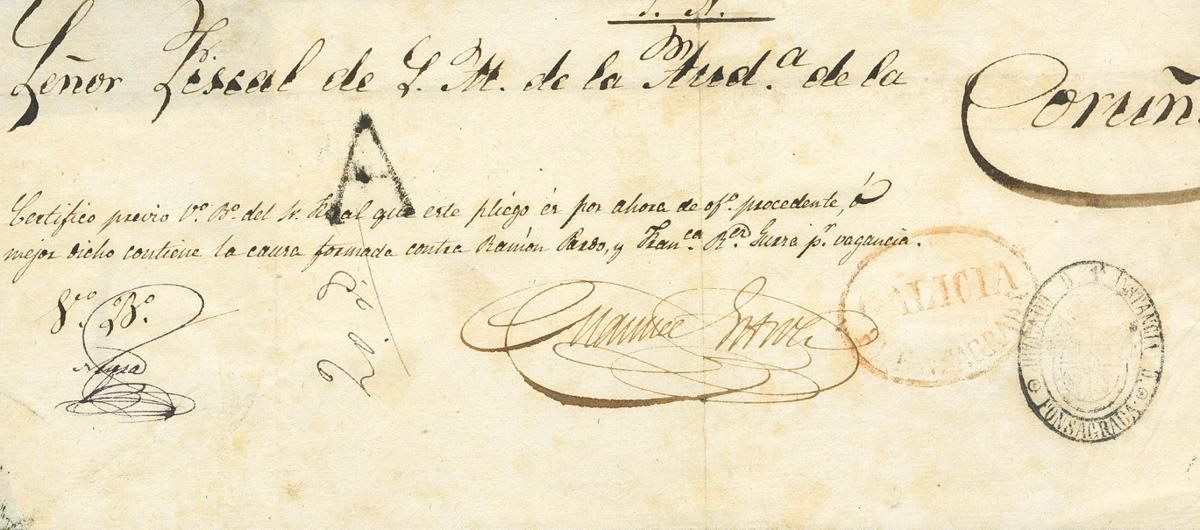 S. N.
Señor Fiscal de S. M. de la Aud.ª de la Coruñ
A
Certifico previo V.º B.º del Sr. Fiscal que este pliego és por ahora de of.º procedente, ó
mejor dicho contiene la causa formada contra Ramón Pardo, y Fran.ca R.ez p.r vagancia.
V.º B.º
Manuel
GALICIA
FONSAGRADA
JUZGADO D. 1ª INSTANCIA D.
FONSAGRADA